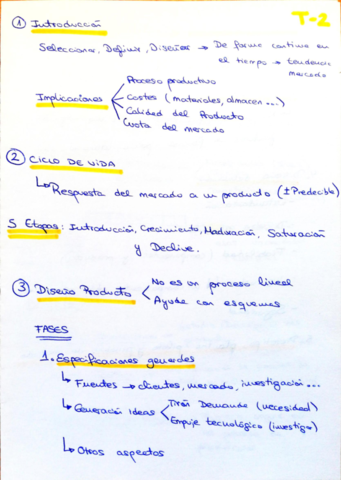 T-2
① Introducción
Seleccionar, Definir, Diseñar → De forma continua en
el tiempo → tendencia
mercado
Implicaciones
Proceso productivo
Costes (materiales, almacen ...)
Calidad del Producto
Cuota del mercado
② CICLO DE VIDA
↳ Respuesta del mercado a un producto (± Predecible)
5 Etapas: Introducción, Crecimiento, Maduración, Saturación
y Declive.
③ Diseño Producto
No es un proceso lineal
Ayuda con esquemas
FASES
1. Especificaciones generales
↳ Fuentes → clientes, mercado, investigación ...
↳ Generación ideas
Tirón Demanda (necesidad)
Empuje tecnológico (investigar)
↳ Otros aspectos